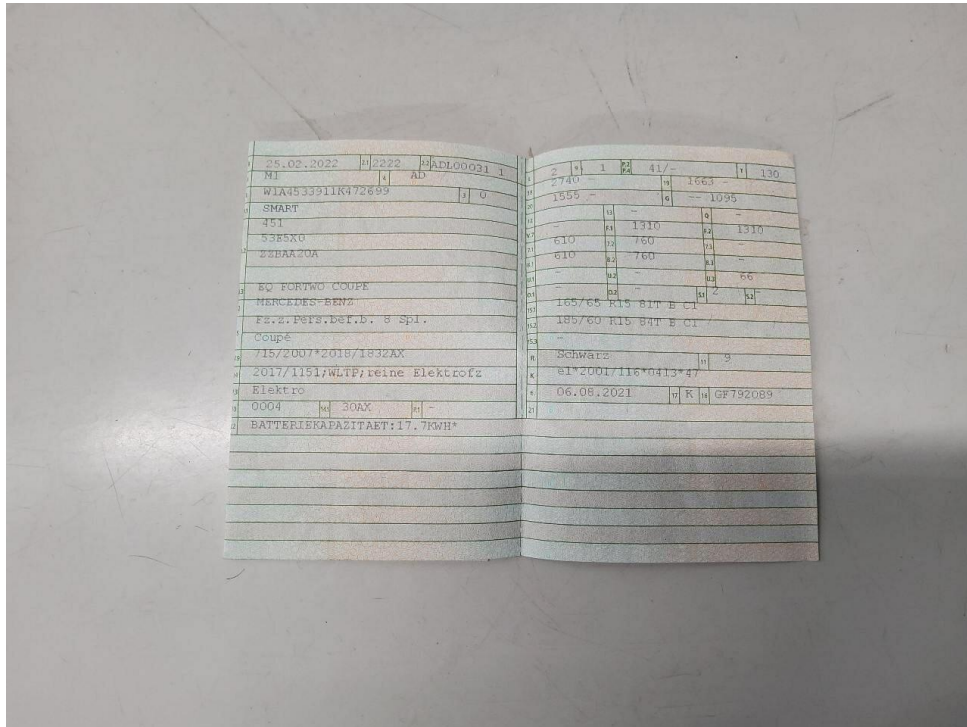 25.02.2022 2.1 2222 2.2 ADL00031 1
M1 4 AD
W1A4533911K472699 3 0
SMART
451
53E5X0
ZZBAA20A
EQ FORTWO COUPE
MERCEDES-BENZ
Fz.z.Pers.bef.b. 8 Spl.
Coupé
715/2007*2018/1832AX
2017/1151;WLTP;reine Elektrofz
Elektro
0004 14.1 30AX P.1 -
22 BATTERIEKAPAZITAET:17.7KWH*
2 9 1 P.2 P.4 41/- T 130
2740 - 19 1663 -
1555 - G -- 1095
- 13 - Q -
- F.1 1310 F.2 1310
610 7.2 760 7.3 -
610 8.2 760 8.3 -
- U.2 - U.3 66
- O.2 - S.1 2 S.2 -
165/65 R15 81T E CI
185/60 R15 84T E CI
-
R Schwarz 11 9
K e1*2001/116*0413*47
6 06.08.2021 17 K 16 GF792089
21